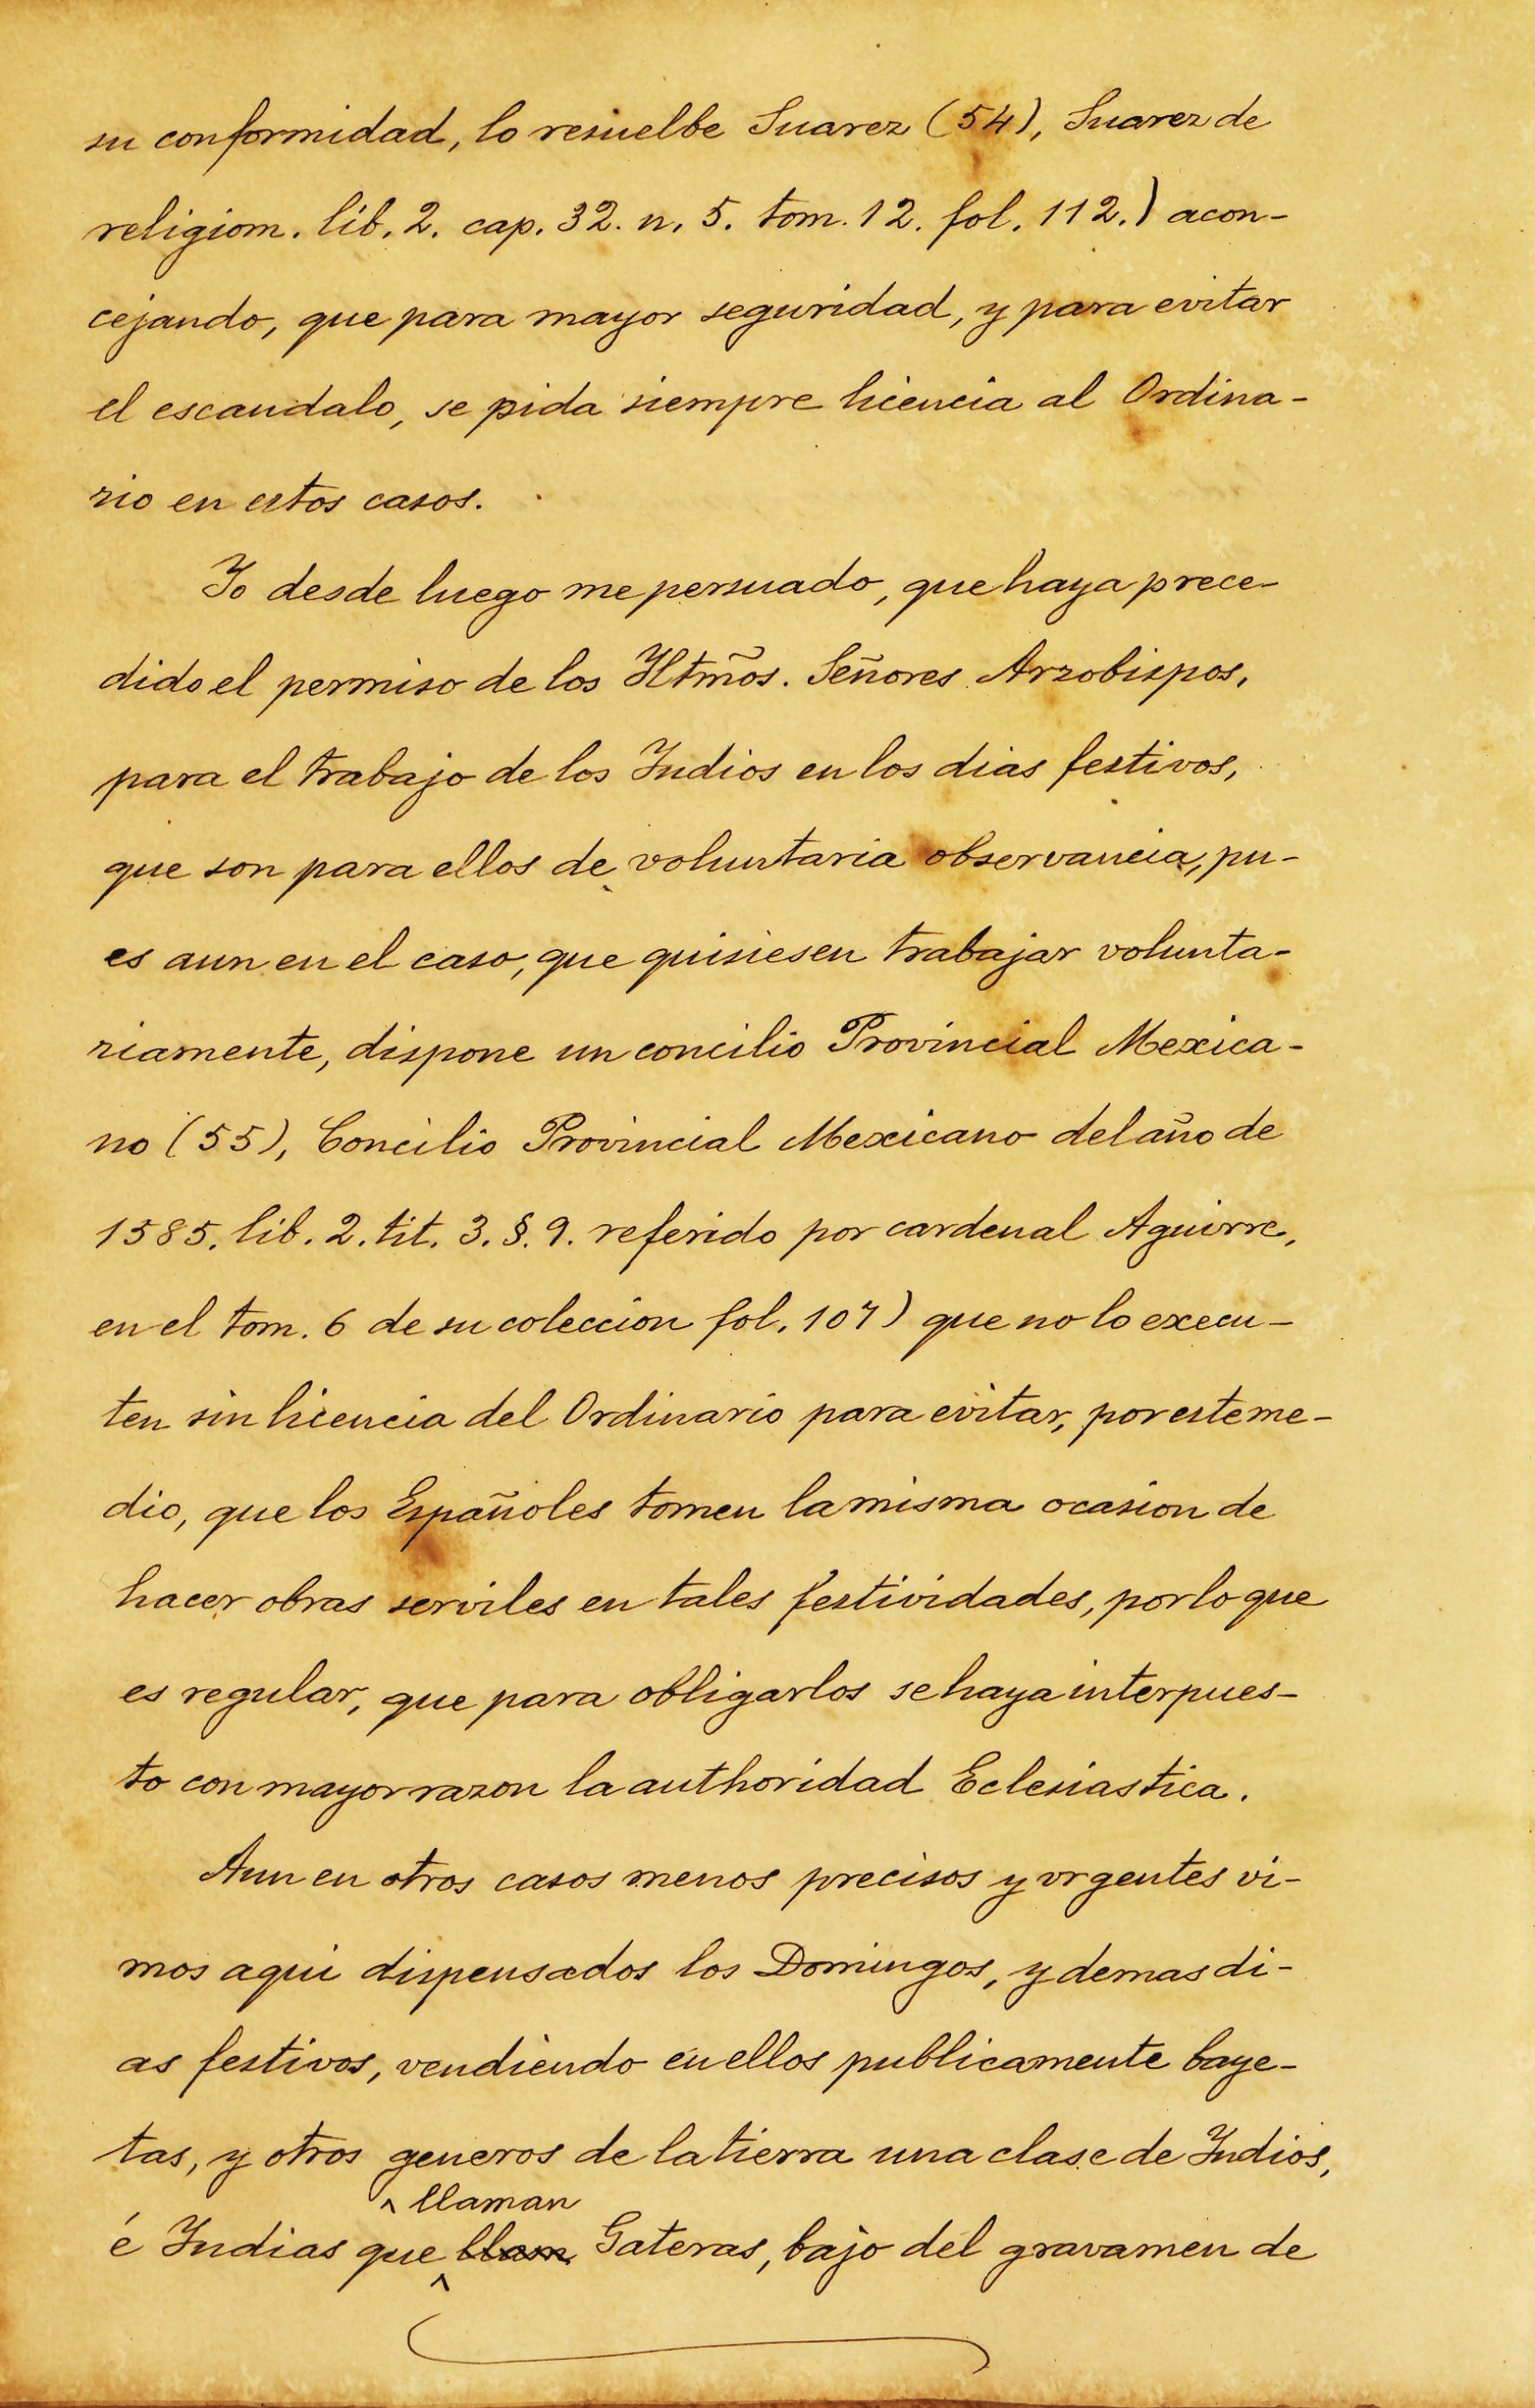 su conformidad, lo resuelbe Suarez (54), Suarez de
religiom. lib. 2. cap. 32. n. 5. tom. 12. fol. 112.) acon-
cejando, que para mayor seguridad, y para evitar
el escandalo, se pida siempre licencia al Ordina-
rio en estos casos.
Yo desde luego me persuado, que haya prece-
dido el permiso de los Yltm̃os. Señores Arzobispos,
para el trabajo de los Yndios en los dias festivos,
que son para ellos de voluntaria observancia, pu-
es aun en el caso, que quisiesen trabajar volunta-
riamente, dispone un concilio Provincial Mexica-
no (55), Concilio Provincial Mexicano del año de
1585. lib. 2. tit. 3. §. 9. referido por cardenal Aguirre,
en el tom. 6 de su coleccion fol. 107) que no lo execu-
ten sin licencia del Ordinario para evitar, por este me-
dio, que los Españoles tomen la misma ocasion de
hacer obras serviles en tales festividades, por lo que
es regular, que para obligarlos se haya interpues-
to con mayor razon la authoridad Eclesiastica.
Aun en otros casos menos precisos y vrgentes vi-
mos aqui dispensados los Domingos, y demas di-
as festivos, vendiendo en ellos publicamente baye-
tas, y otros generos de la tierra una clase de Yndios,
^ llaman
é Yndias que llam Gateras, bajo del gravamen de